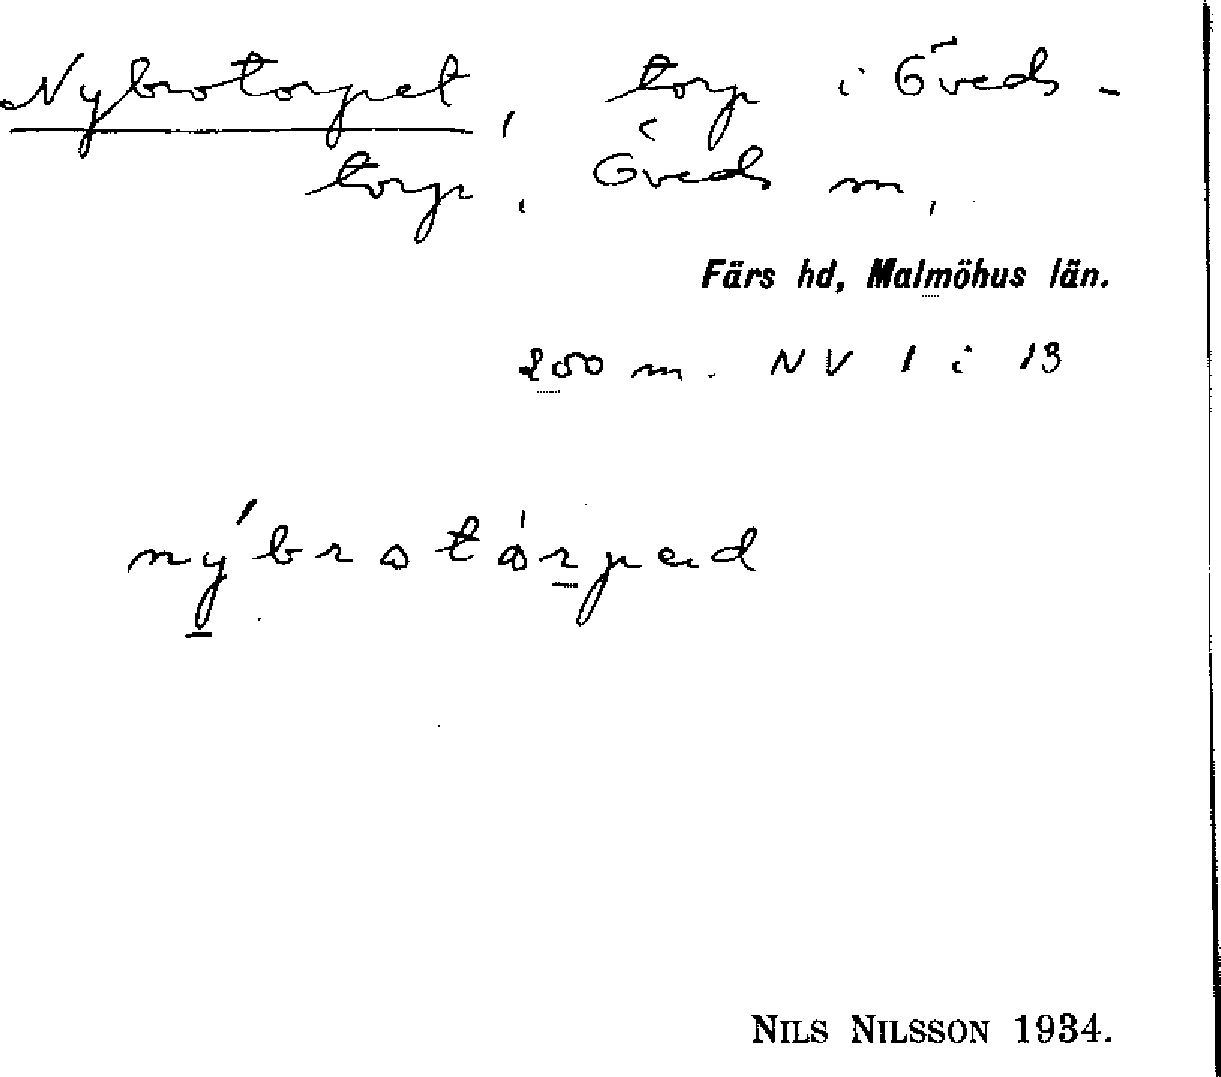 Nybrotorpet, torp i Öveds-
torp, Öveds m,
Färs hd, Malmöhus län.
200 m. NV 1 i 13
nýbrotårpad
NILS NILSSON 1934.